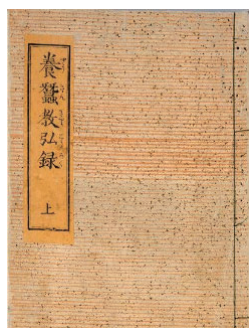 養蠶教弘録 上